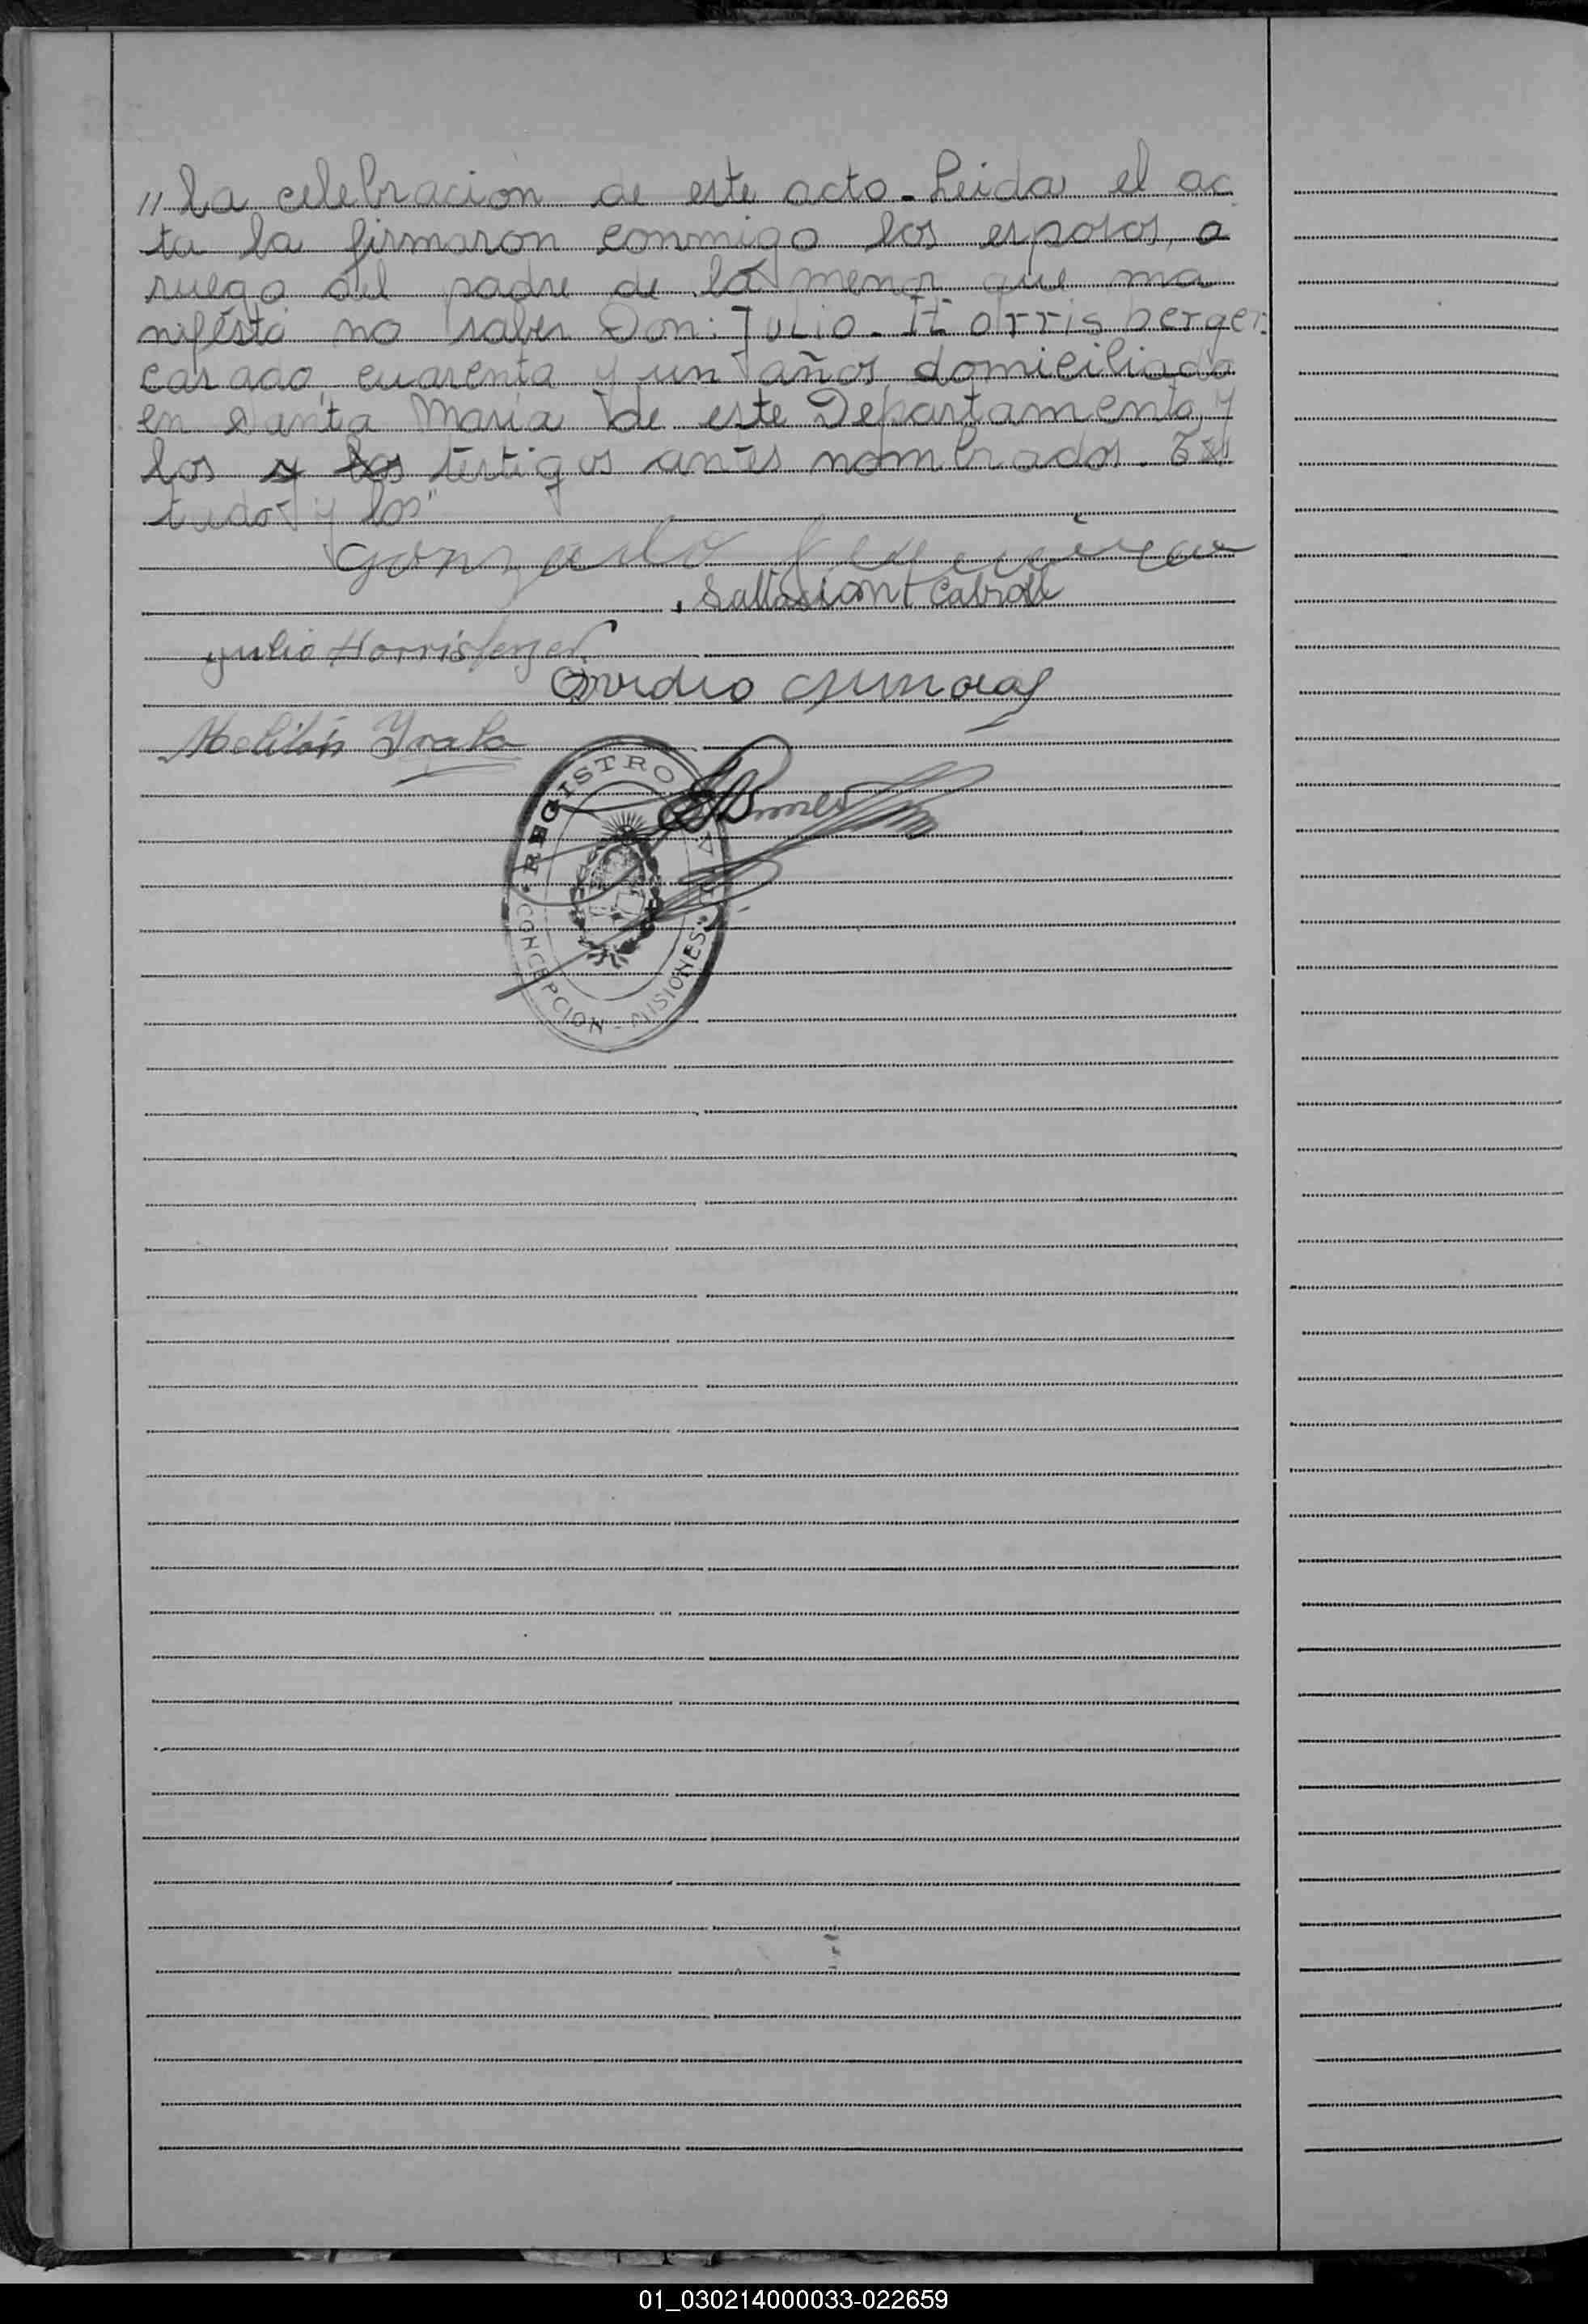 // la celebracion de este acto. Leida el ac
ta la firmaron conmigo los esposos, a
ruego del padre de la menor que ma
nifestó no saber Don: Julio. Horrisberger
casado, cuarenta y un años, domiciliado
en Santa María de este Departamento, y
los y los testigos antes nombrados.
tudo y los"
Gonzalo
Cabral
Julio Horrisberger
Ovidio
Melitón Yrala
REGISTRO
CONCEPCION - MISIONES
01_030214000033-022659